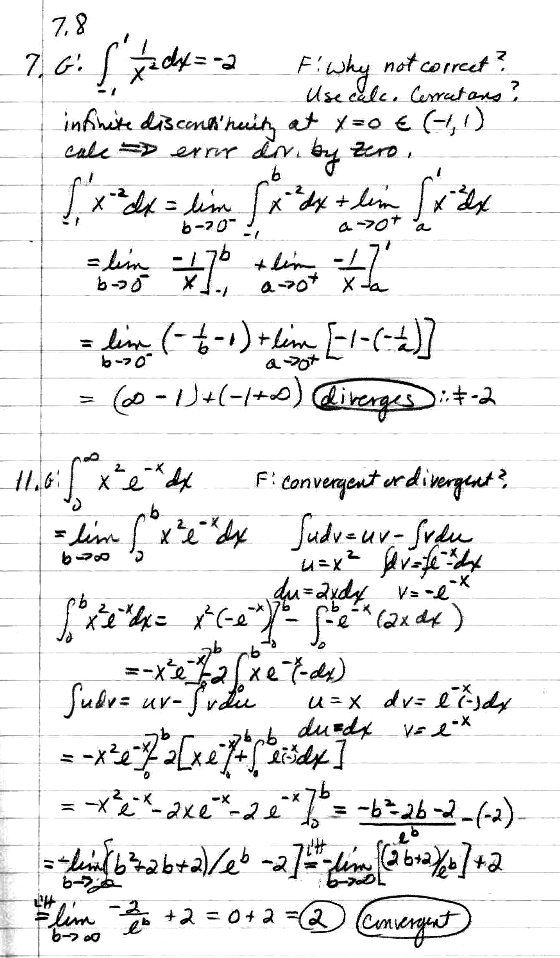 7.8
7. G: ∫_{-1}^{1} 1/x² dx = -2 F: Why not correct?
Use calc. Correct ans?
infinite discontinuity at x=0 ∈ (-1, 1)
calc ⇒ error div. by zero.
∫_{-1}^{1} x^{-2} dx = lim_{b→0^-} ∫_{-1}^{b} x^{-2} dx + lim_{a→0^+} ∫_{a}^{1} x^{-2} dx
= lim_{b→0^-} -1/x ]_{-1}^{b} + lim_{a→0^+} -1/x ]_{a}^{1}
= lim_{b→0^-} (-1/b - 1) + lim_{a→0^+} [-1-(-1/a)]
= (∞ - 1) + (-1+∞) diverges ∴ ≠ -2
11. G: ∫_{0}^{∞} x² e^{-x} dx F: convergent or divergent?
= lim_{b→∞} ∫_{0}^{b} x² e^{-x} dx ∫udv = uv - ∫vdu
u = x² ∫dv = ∫e^{-x} dx
du = 2xdx v = -e^{-x}
∫_{0}^{b} x² e^{-x} dx = x²(-e^{-x})]_{0}^{b} - ∫_{0}^{b} -e^{-x} (2x dx)
= -x² e^{-x}]_{0}^{b} - 2∫_{0}^{b} x e^{-x} (-dx)
∫udv = uv - ∫vdu u = x dv = e^{-x}(-)dx
du = dx v = e^{-x}
= -x² e^{-x}]_{0}^{b} - 2[x e^{-x}]_{0}^{b} + ∫_{0}^{b} e^{-x}(-)dx]
= -x² e^{-x} - 2x e^{-x} - 2 e^{-x} ]_{0}^{b} = (-b² - 2b - 2)/e^b - (-2)
= -lim_{b→∞} [(b² + 2b + 2)/e^b - 2] =^{L'H} -lim_{b→∞} [(2b+2)/e^b] + 2
=^{L'H} lim_{b→∞} -2/e^b + 2 = 0 + 2 = 2 Convergent